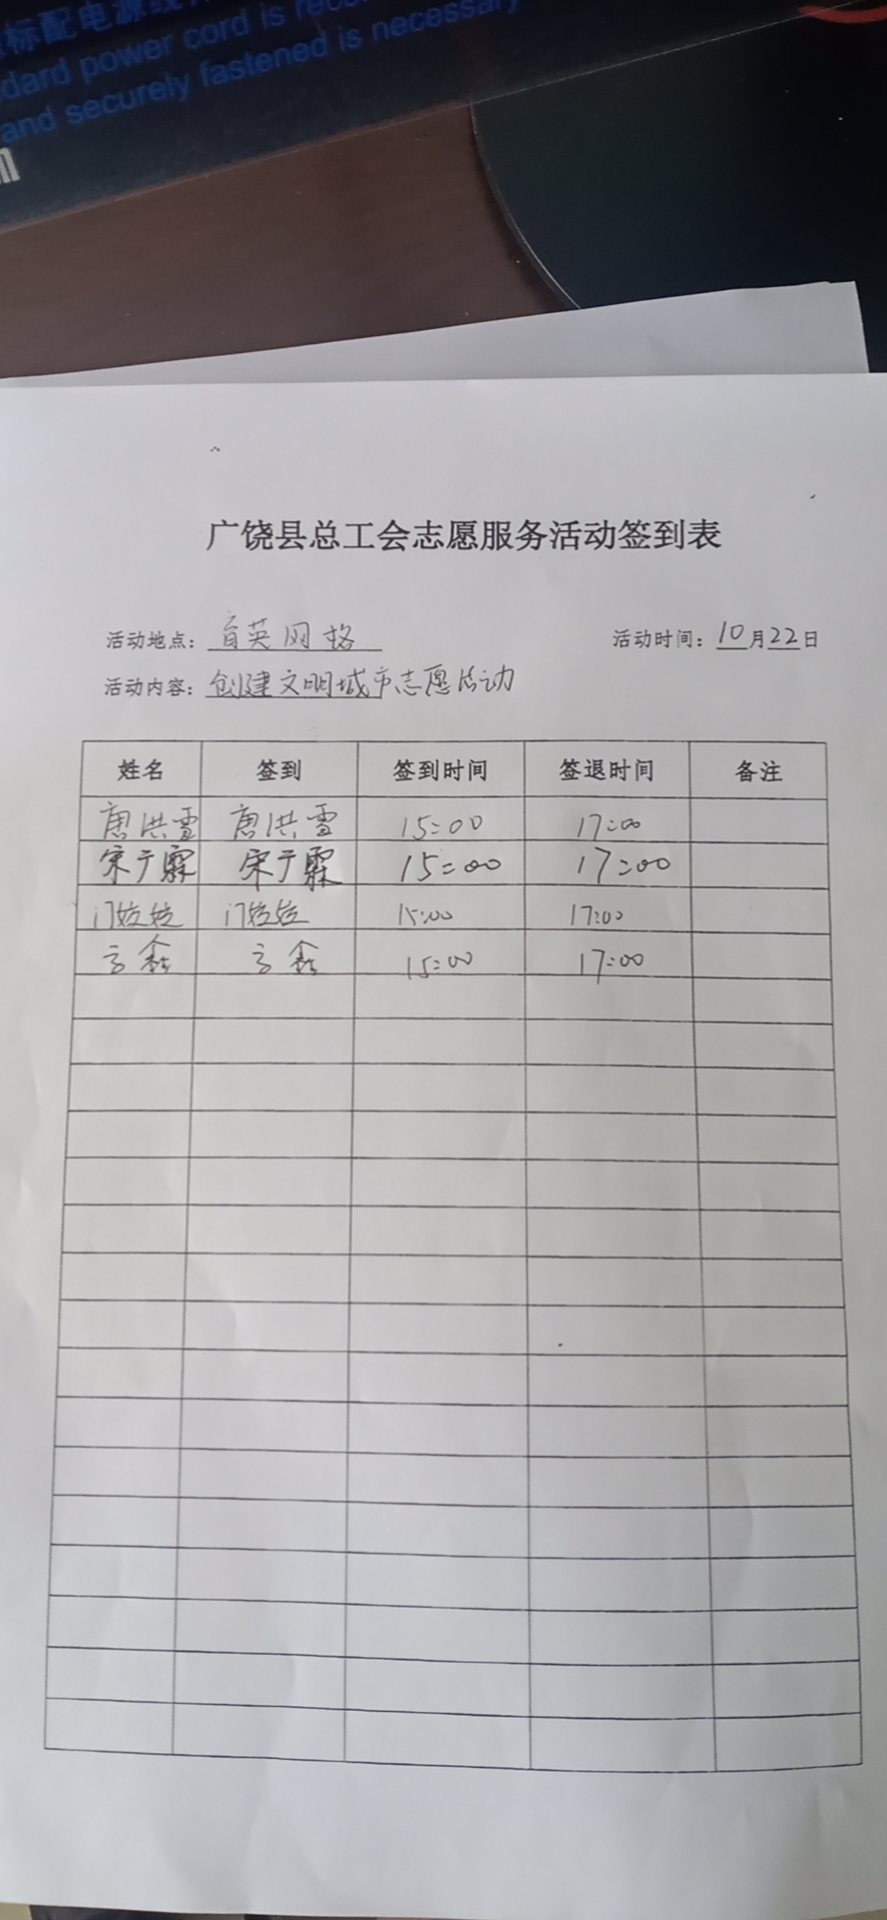 标配电源线
dard power cord is
and securely fastened is necessary
广饶县总工会志愿服务活动签到表
活动地点：育英网格 活动时间：10月22日
活动内容：创建文明城市志愿活动
姓名 签到 签到时间 签退时间 备注
唐洪雪 唐洪雪 15:00 17:00
宋于霖 宋于霖 15:00 17:00
门姣姣 门姣姣 15:00 17:00
鑫 鑫 15:00 17:00